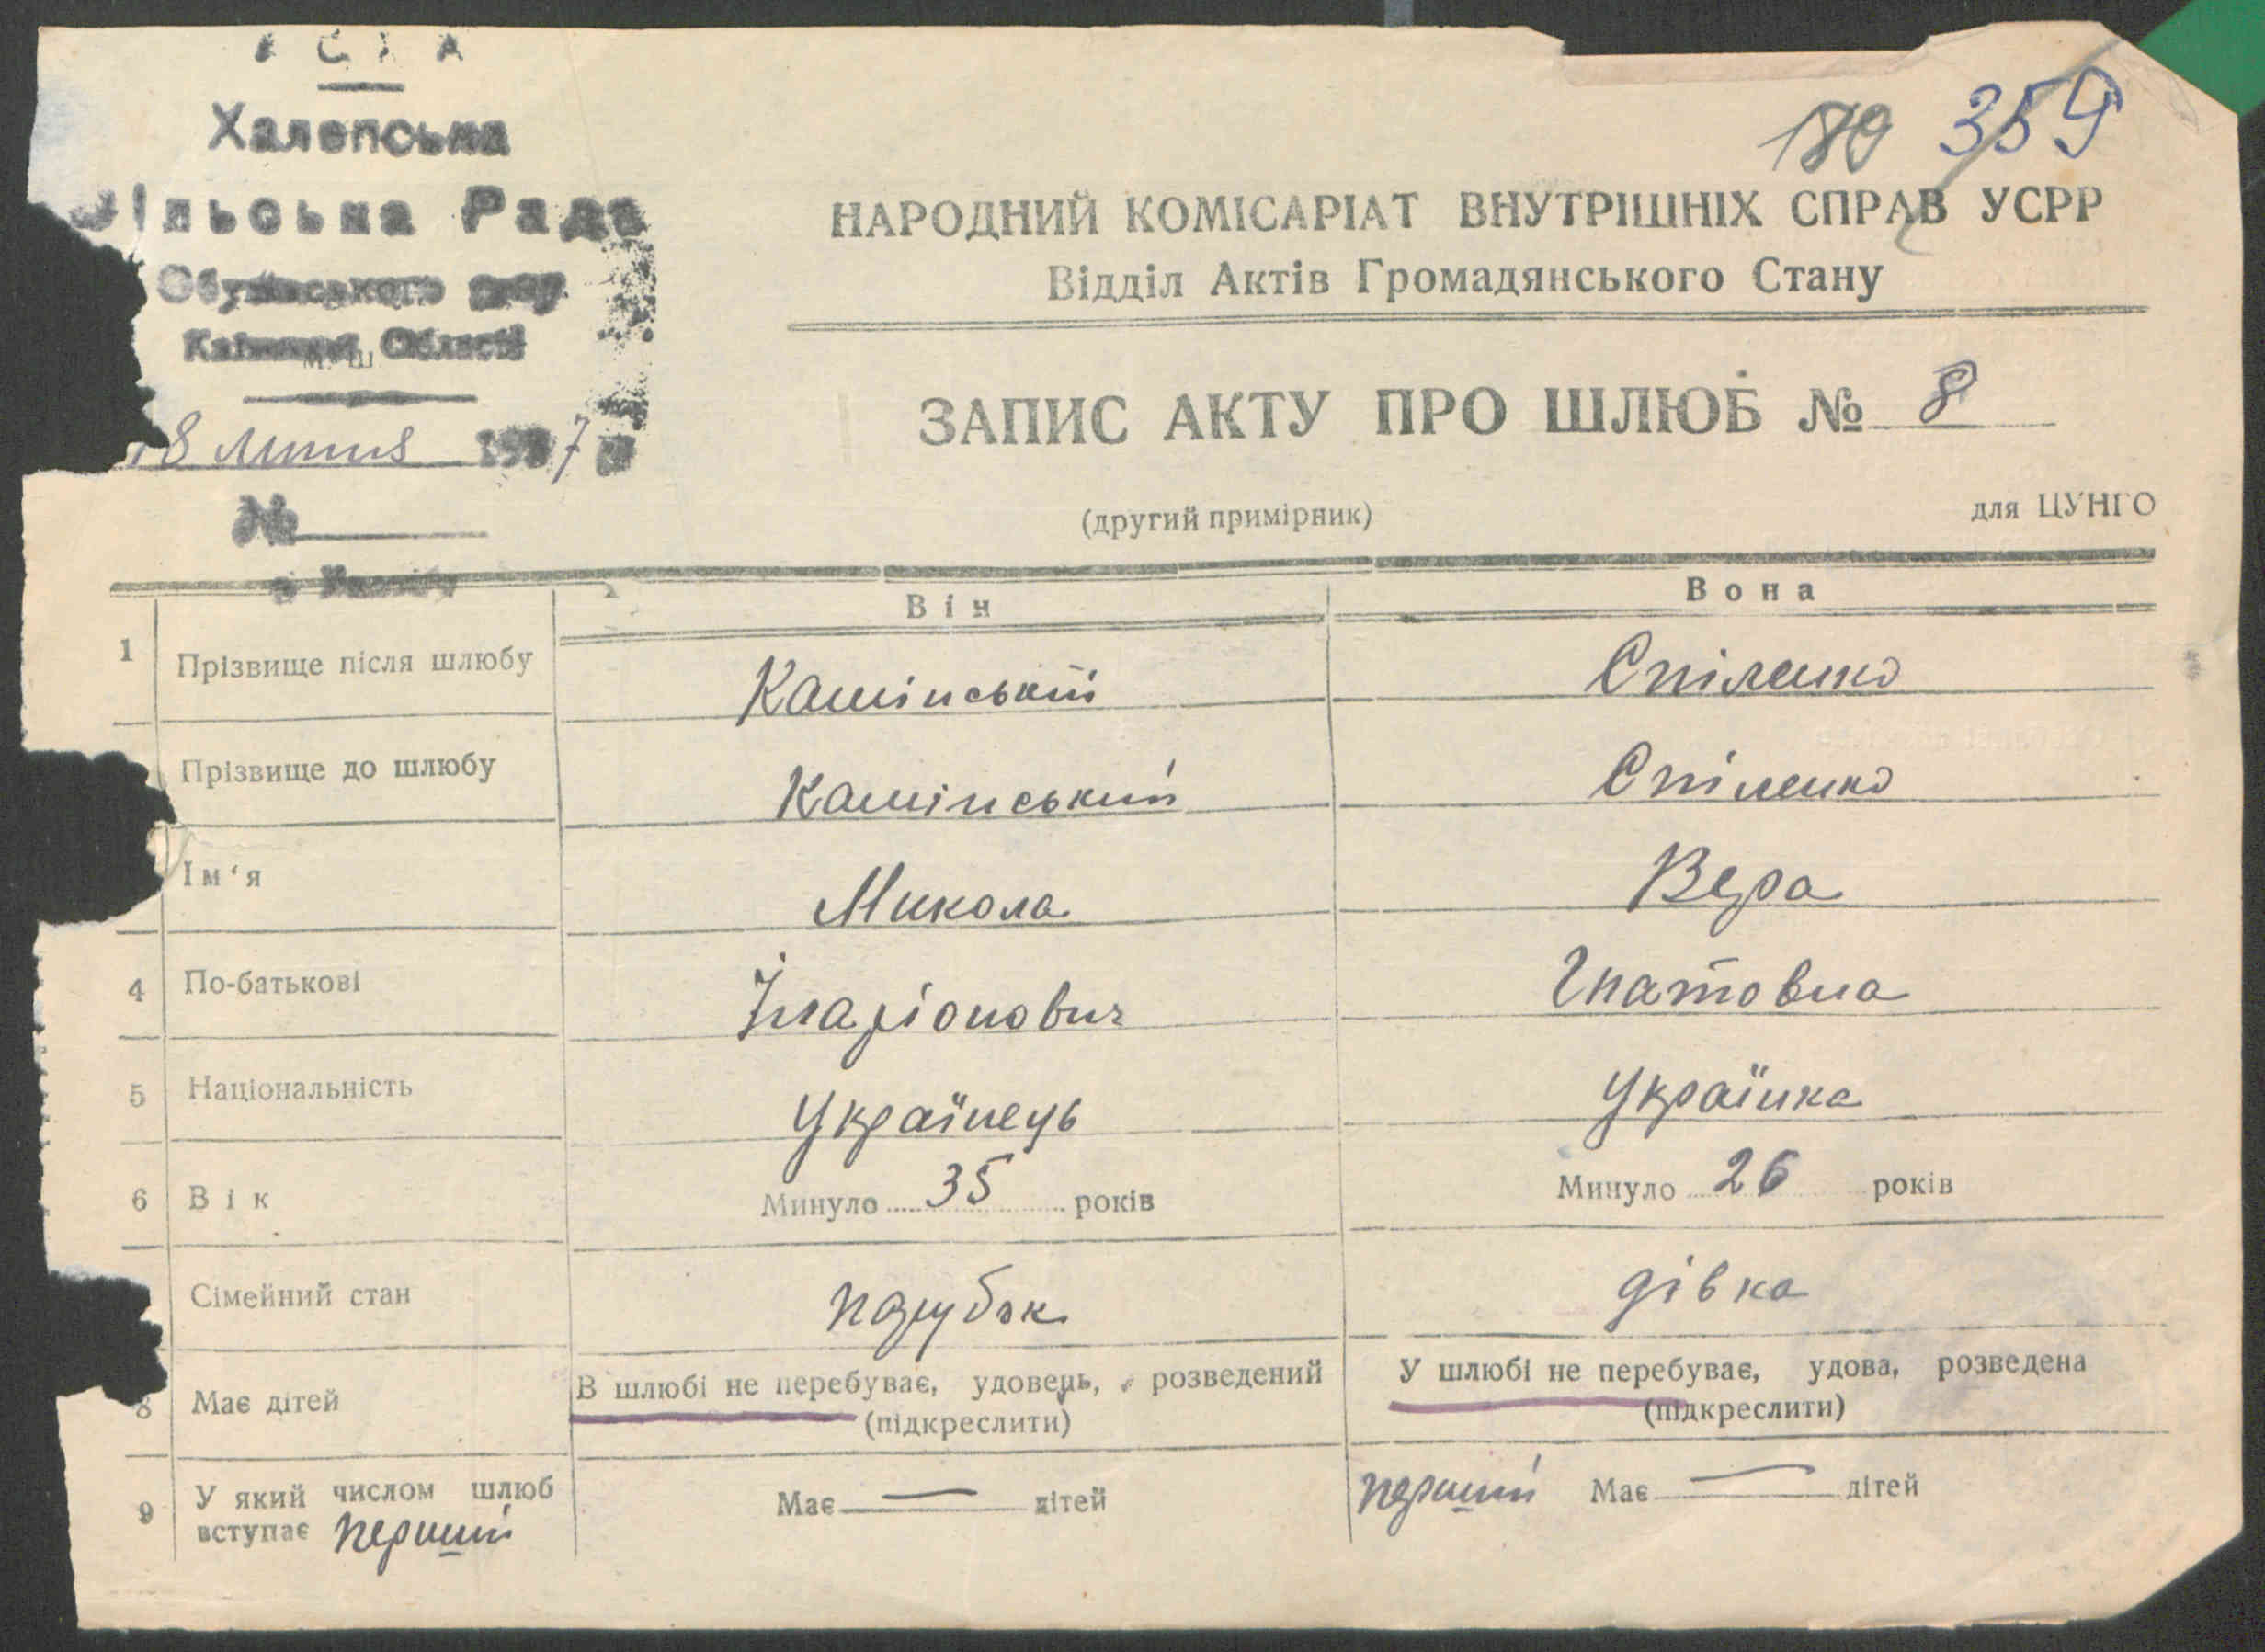 УСРР
Халепська
Сільська Рада
Обухівського р-ну
Київської Області
М. Ш.
18 липня 1937 р
№
189 359
НАРОДНИЙ КОМІСАРІАТ ВНУТРІШНІХ СПРАВ УСРР
Відділ Актів Громадянського Стану
ЗАПИС АКТУ ПРО ШЛЮБ № 8
(другий примірник)
для ЦУНГО
Він Вона
1 Прізвище після шлюбу Камінський Спіленко
Прізвище до шлюбу Камінський Спіленко
Ім‘я Микола Вера
4 По-батькові Іларіонович Гнатовна
5 Національність Українець Українка
6 Вік Минуло 35 років Минуло 26 років
Сімейний стан парубок дівка
8 Має дітей В шлюбі не перебуває, удовець, розведений У шлюбі не перебуває, удова, розведена
(підкреслити) (підкреслити)
9 У який числом шлюб
вступає перший Має — дітей перший Має — дітей